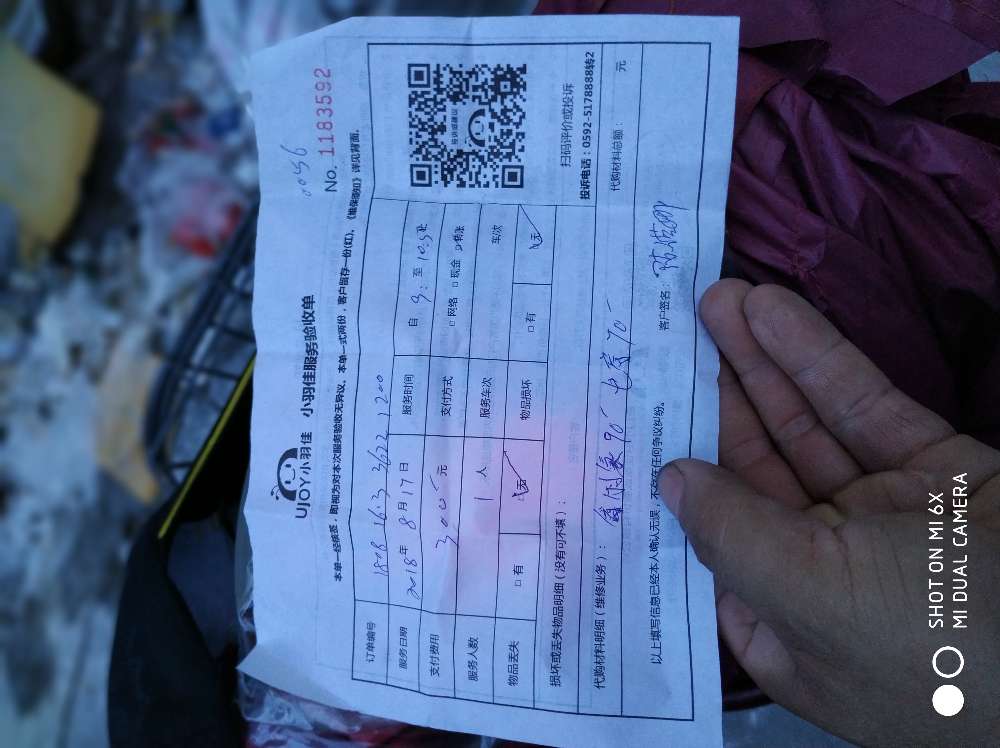 0056
No. 1183592
UJOY小羽佳 小羽佳服务验收单
本单一经核签，即视为对本次服务验收无异议、本单一式两份，客户留存一份(红)、《维保须知》详见背面。
订单编号 1808 16 3 3622 1200
服务日期 2018年 8 月 17 日 服务时间 自 9: 至 10.5
支付费用 元 支付方式 □ 网络 □ 现金 转账
服务人数 1 人 服务车次 车次
物品丢失 □ 有 无 物品损坏 □ 有 无
投诉或建议
扫码评价或投诉
投诉电话：0592-5178888转2
损坏或丢失物品明细（没有可不填）：
代购材料明细（维修业务）： 90 70 代购材料总额： 元
以上填写信息已经本人确认无误，不存在任何争议纠纷。 客户签名：
SHOT ON MI 6X
MI DUAL CAMERA